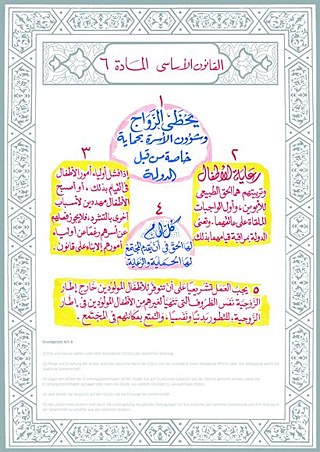 القانون الأساسي المادة ٦
١
يحظى الزواج
وشؤون الأسرة بحماية
خاصة من قبل
الدولة
٢
رعاية الأطفال
وتربيتهم هما الحق الطبيعي
للأبوين، وأول الواجبات
الملقاة على عاتقهما. وتعنى
الدولة بمراقبة قيامهما بذلك
٣
إذا فشل أولياء أمور الأطفال
في القيام بذلك، أو أصبح
الأطفال مهددين لأسباب
أخرى بالتشرد، فلا يجوز فصلهم
عن أسرهم رغما عن أولياء
أمورهم إلا بناء على قانون.
٤
كل أم
لها الحق في أن يقدم المجتمع
لها الحماية والرعاية
٥ يجب العمل تشريعيا على أن تتوفر للأطفال المولودين خارج إطار
الزوجية نفس الظروف التي تتهيأ لغيرهم من الأطفال المولودين في إطار
الزوجية، للتطور بدنيا ونفسيا، والتمتع بمكانتهم في المجتمع.
Grundgesetz Art 6